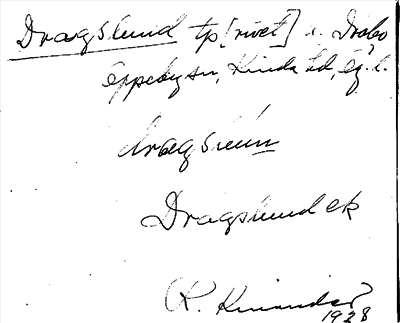 Dragslund tp [rivet] i Drabo
Oppeby sn, Kinda hd, Ög. l.
Dragslund ck
K. Kinander
1928